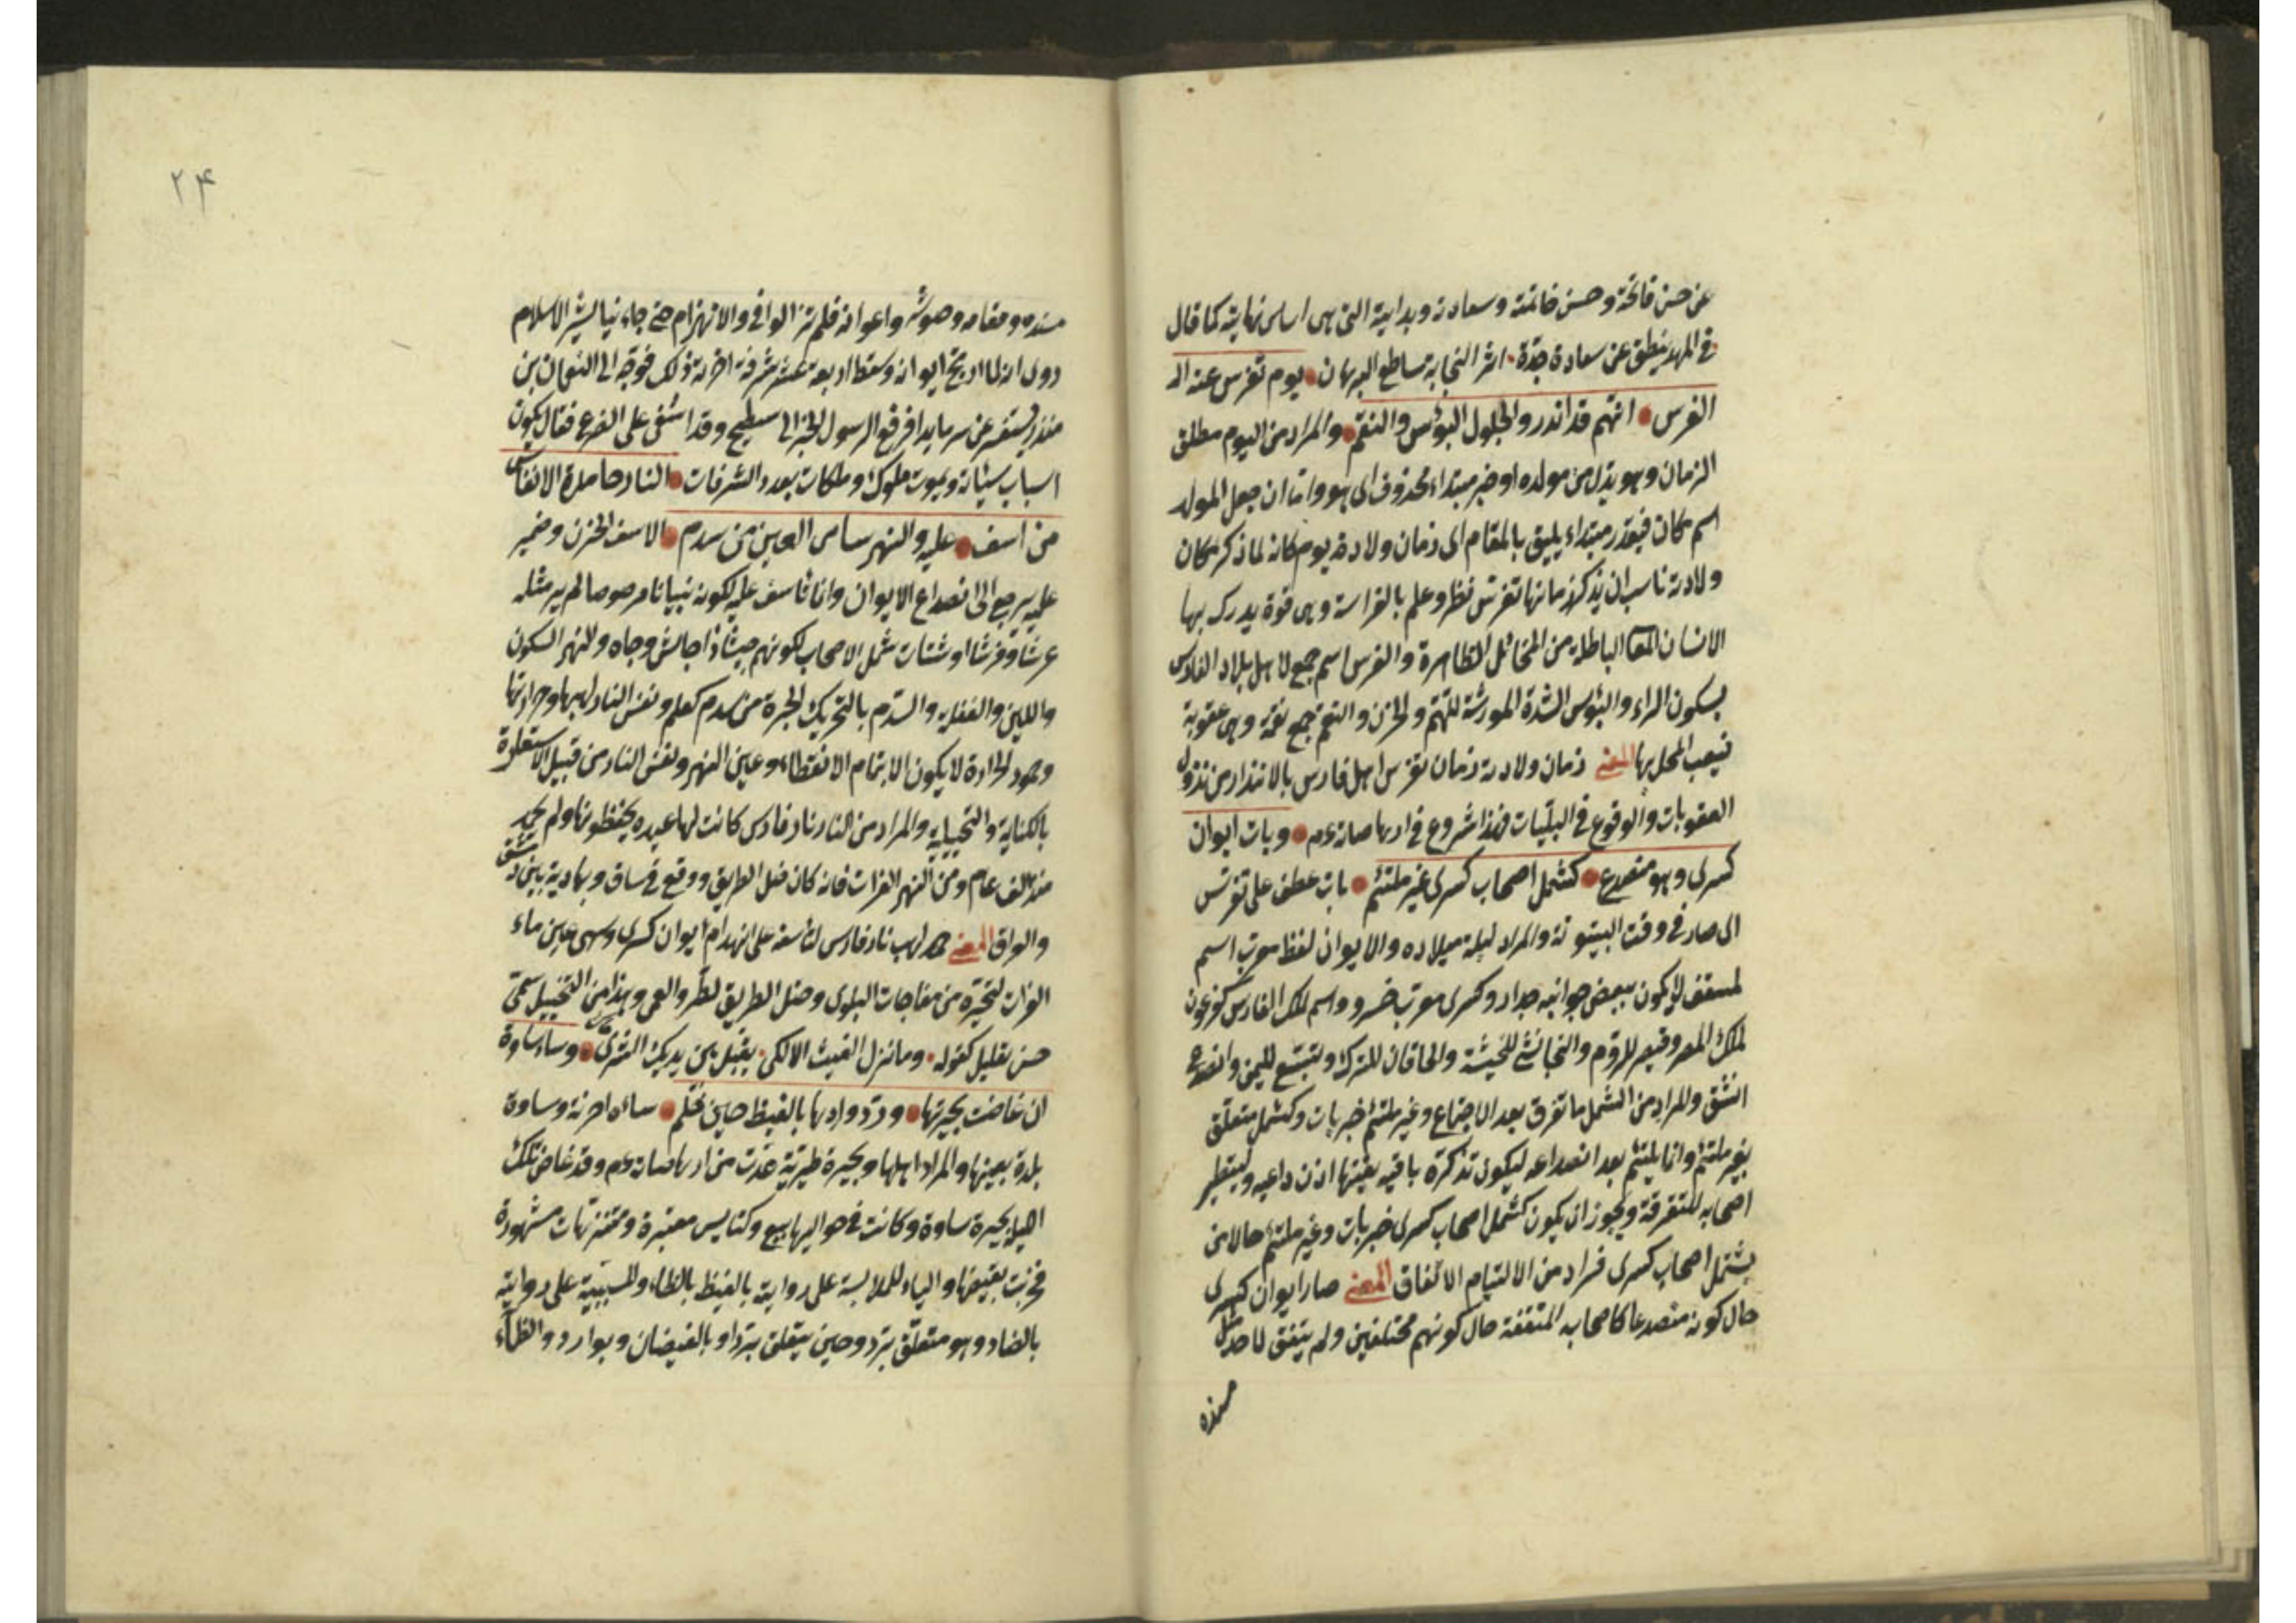 عن حسن فاتحة وحسن خاتمته وسعادته وبداية التى هى اساس نهايته كما قال
فى المهد ينطق عن سعادة جدّه اثر النجابة ساطع البرهان يوم تفرس عنه الـ
الفرس انهم قد انذروا بحلول البؤس والنقم والمراد من اليوم مطلق
الزمان وهو بدل من مولده او خبر مبتداء محذوف اى هو واما ان جعل المولد
اسم مكان فيقدر مبتداء يليق بالمقام اى زمان ولادته يوم كانه لما ذكر مكان
ولادته ناسب ان يذكر زمانها تفرس نظر وعلم بالفراسة وهى قوة يدرك بها
الانسان المعا الباطلة من المخائل الظاهرة والفرس اسم جمع لاهل بلاد الفارس
بسكون الراء والبؤس الشدة المورثة للتهم والحزن والنقم جمع نقمة وهى عقوبة
المحل بها المعنى زمان ولادته زمان تفرس اهل فارس بالانذار من نزول
العقوبات والوقوع فى البليّات فهذا شروع فى ارهاصاته عم وبات ايوان
كسرى وهو منصدع كشمل اصحاب كسرى غير ملتئم بات عطف على تفرس
اى صار فى وقت البيتوتة والمراد ليلة ميلاده والايوان لفظ معرب اسم
لمسقف لا يكون ببعض جوانبه جدار وكسرى معرب خسرو واسم لملك الفارس كفرعون
لملك المصر وقيصر للروم والنجاشى للحبشة والخاقان للترك وتبّع لليمن وانصدع
انشق والمراد من الشمل ما تفرق بعد الاجتماع وغير ملتئم خبر بات وكشمل متعلق
بغير ملتئم وانما يلتئم بعد انصداعه ليكون تذكرة باقية اذن داعيه وليتطير
اصحابه للتفرقة ويجوز ان يكون كشمل اصحاب كسرى خبر بات وغير ملتئم حالا من
يشتمل اصحاب كسرى فراد من الالتيام الاتفاق المعنى صار ايوان كسرى
حال كونه منصدعا كاصحابه المتفقة حال كونهم مختلفين ولم يتفق لاحد مثل
مسنده
مسنده ومقامه واعوانه فلم تزالوا فى والانهزام حتى جاء نيا ليشر الاسلام
روى انه لما ارتج ايوانه وسقط اربعة عشر شرفة احزنه ذلك فوجه الى النعمان بن
منذر يستفسر عن سر ما بدا فرفع الرسول الخبر الى سطيح وقد اشفى على الضرع فقال يكون
اسباب سيئاته ويموت ملوك وملكات بعدد الشرفات والنار خامدة الانفاس
من اسف عليه والنهر ساهى العين من سدم الاسف الحزن وضمير
عليه يرجع الى انصداع الايوان وانما تاسف عليه لكونه بنيانا مرصوصا لم ير مثله
عرشا وفرشا او شتات شمل الاصحاب لكونهم جيشا ذا جالش وجاه والنهر السكون
واللين والغفلة والسدم بالتحريك الحيرة من سدم كعلم ونفس النار لهبها وحرارتها
وخمود الحرارة لا يكون الا بتمام الانفطاء وعين النهر ونفس النار من قبيل الاستعارة
بالكناية والتخييلية والمراد من النار نار فارس كانت لها عبده يحفظونها ولم تخمد
منذ الف عام ومن النهر الفرات فانه كان ضل الطريق ووقع فى ساق وبادية بين دمشق
والعراق المعنى خمد لهب نار فارس لتأسفه على انهدام ايوان كسرى وسهى عين ماء
الفرات لتحيره من مفاجات البلوى وضل الطريق وهذا من التخييل سمى
حسن تعليل كقوله وما نزل الغيث الا لكى يقبل بين يديك الثرى وساء ساوة
ان غاضت بحيرتها وردّ واردها بالغيظ حين ظمى ساءه احزنه وساوة
بلدة بعينها والمراد اهلها وبحيرة طبرية عدت من ارهاصاته عم وقد غاض تلك
الليلة بحيرة ساوة وكانت فى حواليها بيع وكنايس معتبرة ومتنزهات مشهورة
فخربت بغيضها والباء للملابسة على رواية بالغيظ بالظاء وللسببية على رواية
بالضاد وهو متعلق بردّ وحين يتعلق بردّ او بالفيضان وبوارد والظماء
۲۴